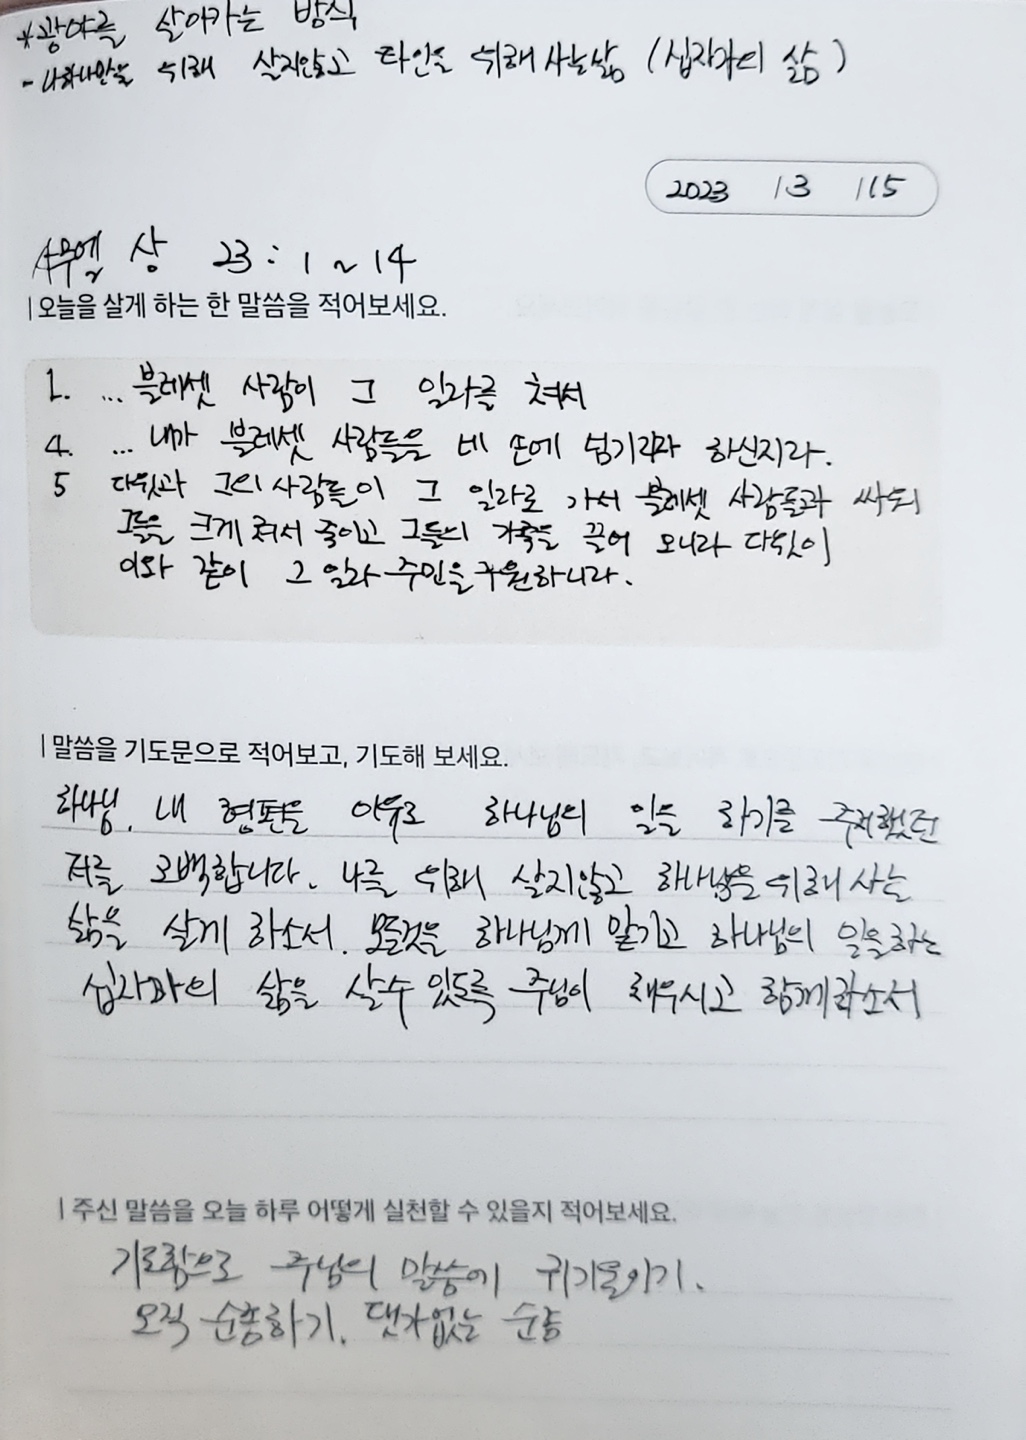 *광야를 살아가는 방식
- 나하나만을 위해 살지않고 타인을 위해 사는삶 (십자가의 삶)
2023 /3 /15
사무엘 상 23 : 1 ~ 14
|오늘을 살게 하는 한 말씀을 적어보세요.
1. ... 블레셋 사람이 그 일라를 쳐서
4. ... 내가 블레셋 사람들을 네 손에 넘기리라 하신지라.
5 다윗과 그의 사람들이 그 일라로 가서 블레셋 사람들과 싸우되
그들을 크게 쳐서 죽이고 그들의 가축을 끌어 오니라 다윗이
이와 같이 그 일라 주민을 구원하니라.
|말씀을 기도문으로 적어보고, 기도해 보세요.
하나님. 내 형편을 이유로 하나님의 일을 하기를 주저했던
저를 고백합니다. 나를 위해 살지않고 하나님을 위해 사는
삶을 살게 하소서. 모든것을 하나님께 맡기고 하나님의 일을 하는
십자가의 삶을 살수 있도록 주님이 채우시고 함께하소서
|주신 말씀을 오늘 하루 어떻게 실천할 수 있을지 적어보세요.
기도함으로 주님의 말씀에 귀기울이기.
오직 순종하기. 댓가없는 순종